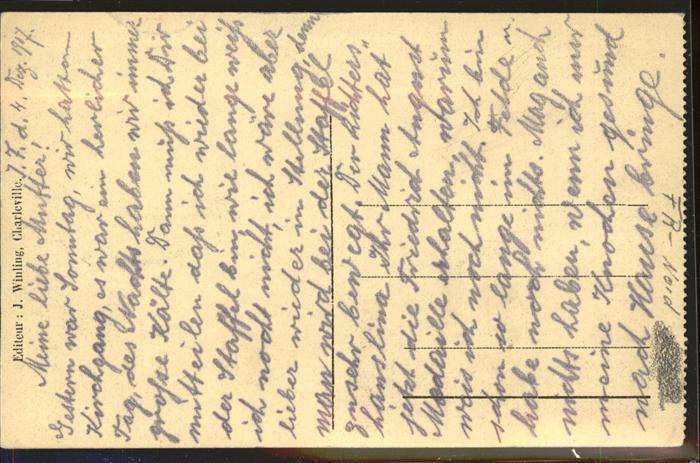 Editeur: J. Winling, Charleville.
J. F. d. 4. Dez. 1917.
Meine liebe Mutter!
Gestern war Sonntag, wir hatten
Kirchgang, es war ein herlicher
Tag, des Nachts haben wir immer
große Kälte. Dann muß ich Dir
mitteilen daß ich wieder bei
der Staffel bin, wie lange weiß
ich noch nicht, ich wäre aber
lieber wieder in Stellung, denn
man wird bei der Staffel
zu sehr bewegt. Der
Ihr Mann hat
jetzt die Friedrich August
Medaille erhalten, warum
weis ich noch nicht. Ich bin
schon so lange im Felde u.
habe noch nichts. Mag auch
nichts haben, wenn ich nur
meine Knochen gesund
nach Hause bringe.